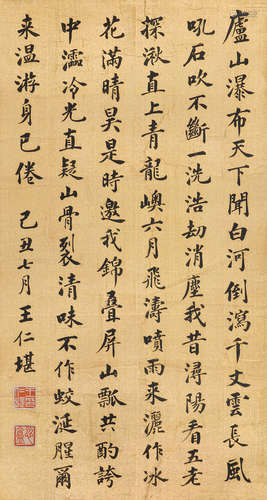 廬山瀑布天下聞白河倒瀉千丈雲長風
吼石吹不斷一洗浩劫消塵我昔潯陽看五老
探湫直上青龍嶼六月飛濤噴雨來灑作冰
花滿晴昊是時邀我錦疊屏山瓢共酌誇
中濡冷光直疑山骨裂清味不作蛟涎腥爾
来温游身已倦 己丑七月王仁堪